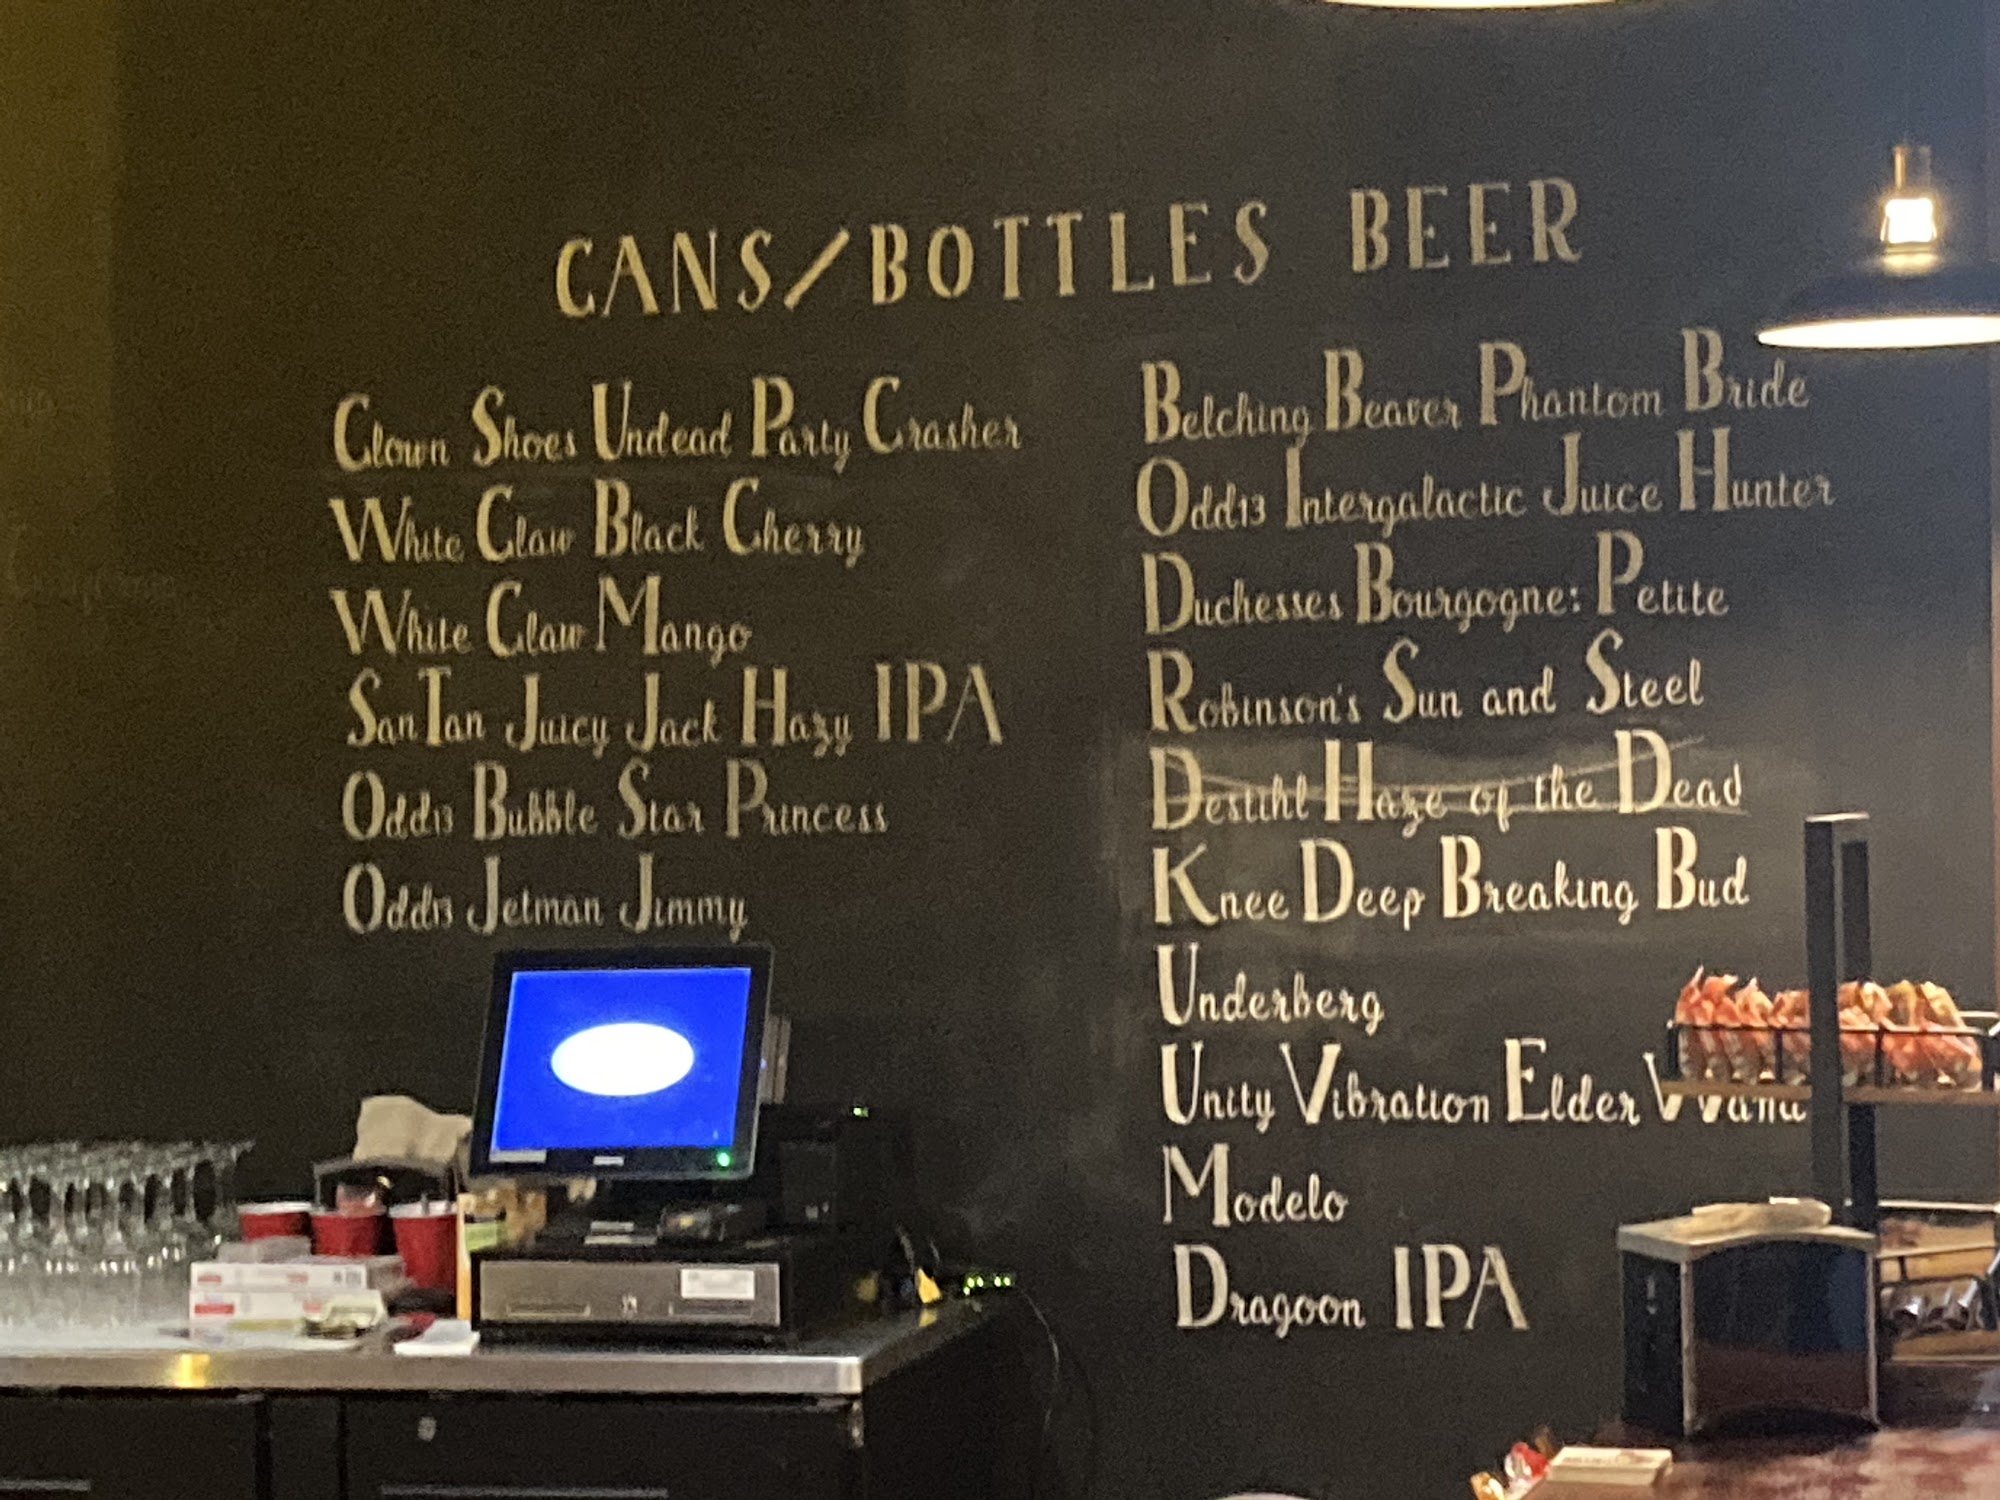 CANS/BOTTLES BEER
Clown Shoes Undead Party Crasher
White Claw Black Cherry
White Claw Mango
SanTan Juicy Jack Hazy IPA
Odd13 Bubble Star Princess
Odd13 Jetman Jimmy
Belching Beaver Phantom Bride
Odd13 Intergalactic Juice Hunter
Duchesses Bourgogne: Petite
Robinson's Sun and Steel
Destihl Haze of the Dead
Knee Deep Breaking Bud
Underberg
Unity Vibration Elder Wand
Modelo
Dragoon IPA